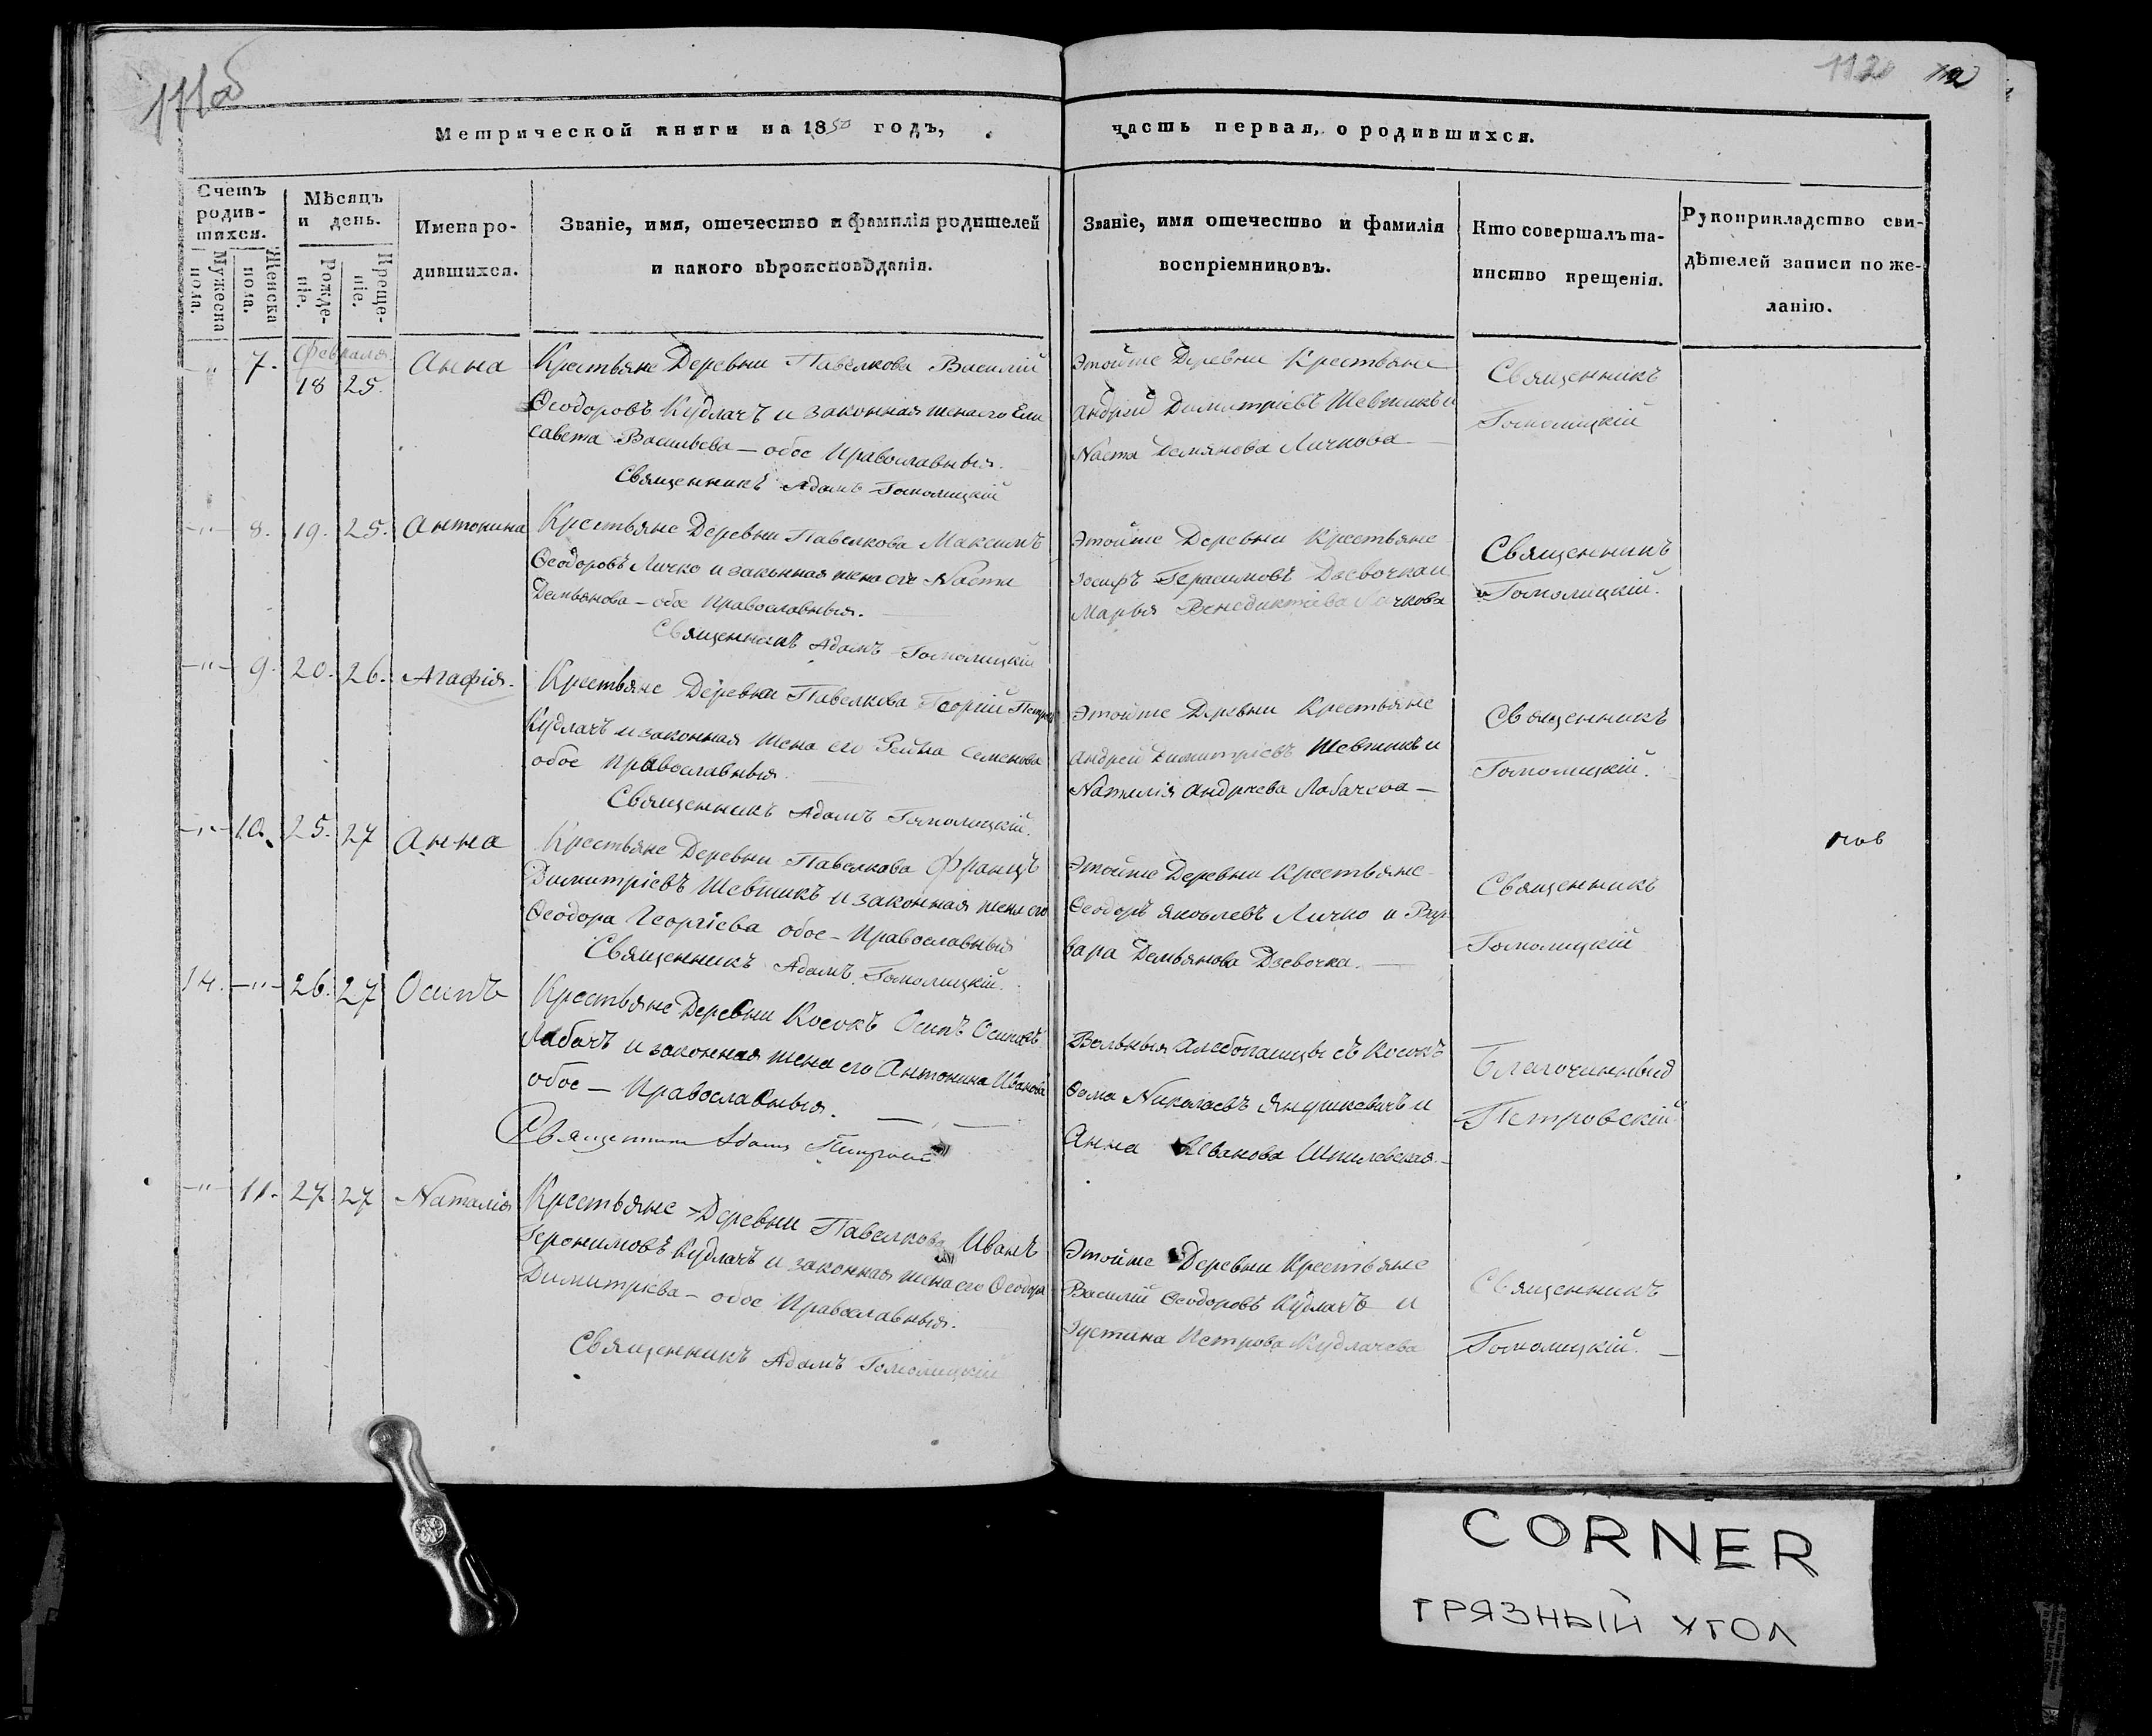 111об
112
Метрической книги на 1850 годъ,
часть первая, о родившихся.
Счетъ родившихся.
Мужеска пола.
Женска пола.
Мѣсяцъ и день.
Рожденіе.
Крещеніе.
Имена родившихся.
Званіе, имя, отечество и фамилія родителей
и какого вѣроисповѣданія.
Званіе, имя отечество и фамилія
воспріемниковъ.
Кто совершалъ та-
инство крещенія.
Рукоприкладство сви-
дѣтелей записи по же-
ланію.
Февраля
-"- 7. 18 25. Анна
Крестьяне Деревни Павелкова Василій
Ѳеодоровъ Кудлачъ и законная жена его Ели
савета Васильева — обое Православныя.
Священникъ Адамъ Гомолицкій
Этойже Деревни Крестьяне
Андрей Димитріевъ Шевчикъ и
Nаста Демянова Личкова —
Священникъ
Гомолицкій
-"- 8. 19. 25. Антонина
Крестьяне Деревни Павелкова Максимъ
Ѳеодоровъ Личко и законная жена его Nаста
Демьянова — обое Православныя. —
Священникъ Адамъ Гомолицкій
Этойже Деревни Крестьяне
Іосифъ Герасимовъ Дзевочка и
Марья Венедиктова Личкова
Священникъ
Гомолицкій.
-"- 9. 20. 26. Агафія.
Крестьяне Деревни Павелкова Георгій Петровъ
Кудлачъ и законная жена его Семенова
обое Православныя. —
Священникъ Адамъ Гомолицкій.
Этойже Деревни Крестьяне
Андрей Димитріевъ Шевчикъ и
Nаталія Андреева Лабачева —
Священникъ
Гомолицкій.
-"- 10. 25. 27 Анна
Крестьяне Деревни Павелкова Францъ
Димитріевъ Шевчикъ и законная жена его
Ѳеодора Георгіева обое — Православныя
Священникъ Адамъ Гомолицкій.
Этойже Деревни Крестьяне
Ѳеодоръ Яковлевъ Личко и Вар
вара Демьянова Дзевочка. —
Священникъ
Гомолицкій
14. -"- 26. 27 Осипъ
Крестьяне Деревни Косокъ Осипъ Осиповъ
Лабачъ и законная жена его Антонина Иванова
обое — Православныя. —
Священникъ Адамъ
Вольныя хлебопашцы съ Косокъ
Ѳома Nиколаевъ Янушкевичъ и
Анна Иванова Шпилевская. —
Благочинный
Петровскій
-"- 11. 27. 27 Nаталія
Крестьяне Деревни Павелкова Иванъ
Іеронимовъ Кудлачъ и законная жена его Ѳеодора
Димитріева — обое Православныя.
Священникъ Адамъ Гомолицкій
Этойже Деревни Крестьяне
Василій Ѳеодоровъ Кудлачъ и
Іустина Петрова Кудлачева
Священникъ
Гомолицкій. —
CORNER
ГРЯЗНЫЙ УГОЛ